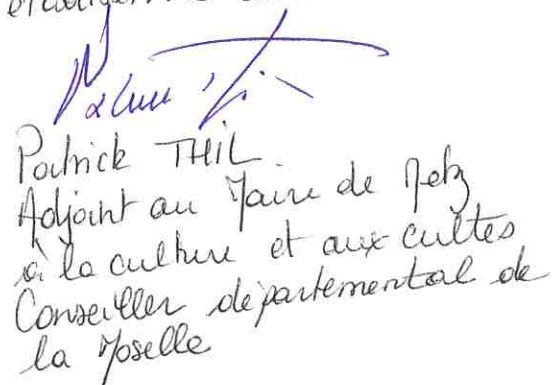 Patrick THIL
Adjoint au Maire de Metz
à la culture et aux cultes
Conseiller départemental de
la Moselle